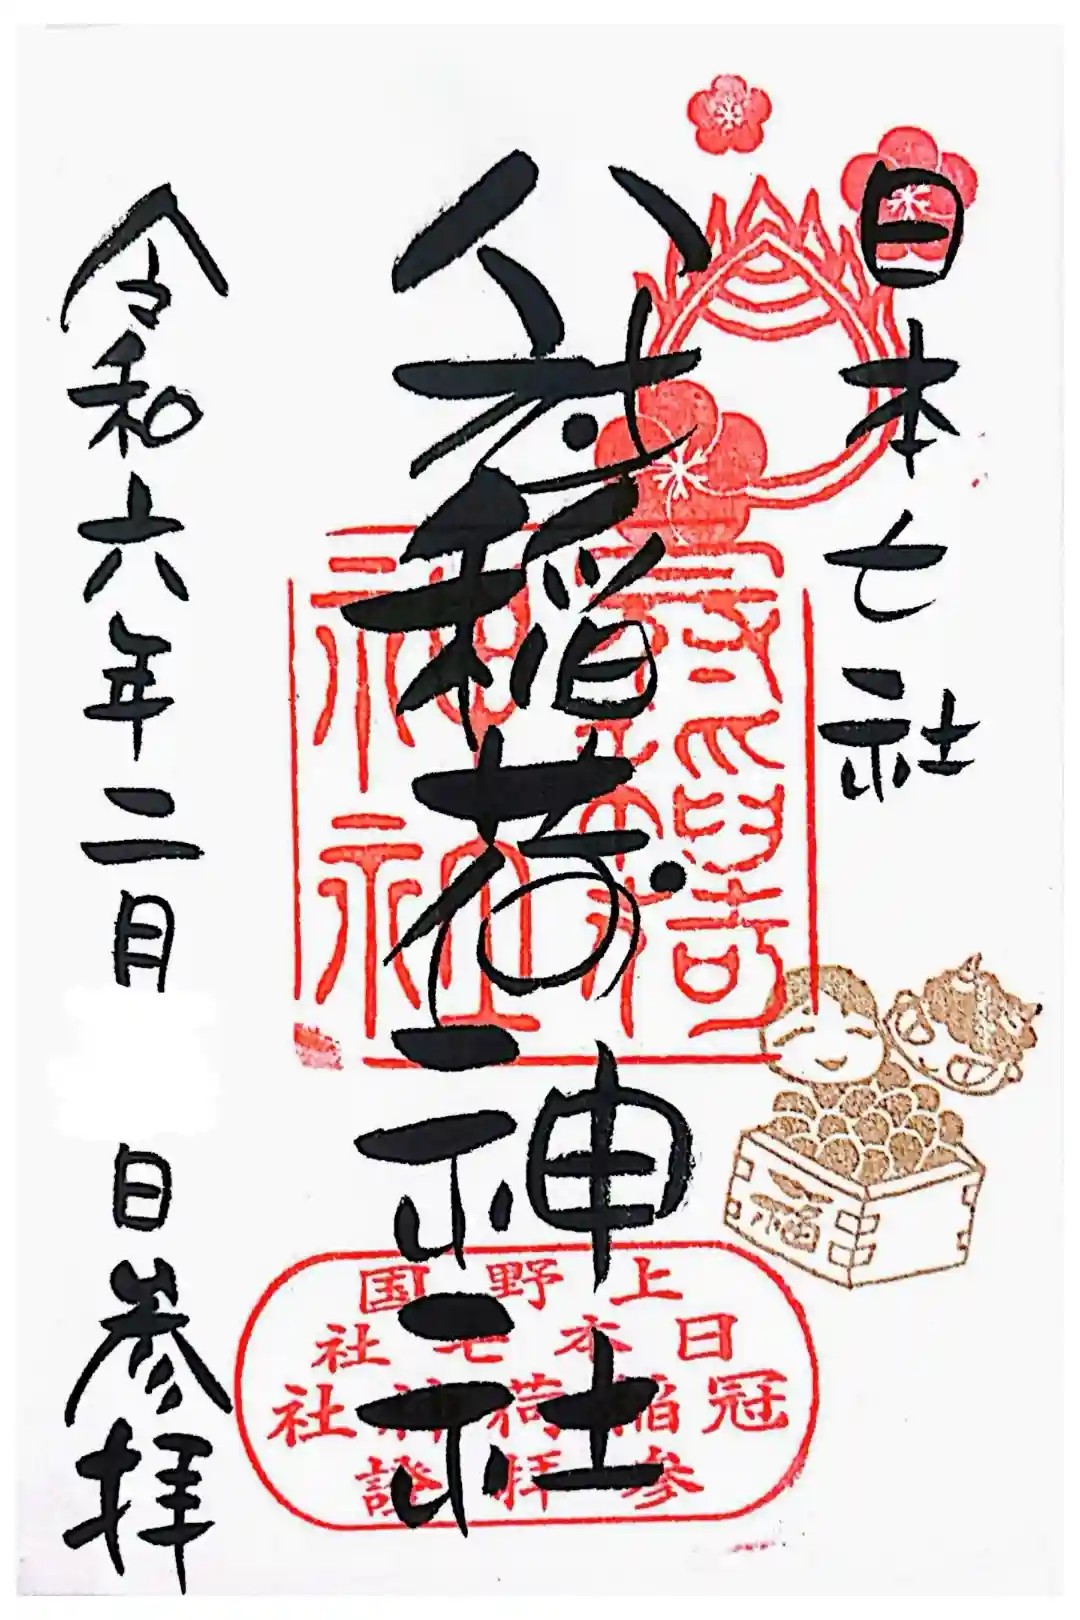 日本七社
冠稲荷神社
令和六年二月 日参拝
上野国
日本七社
冠稲荷神社
参拝證
福